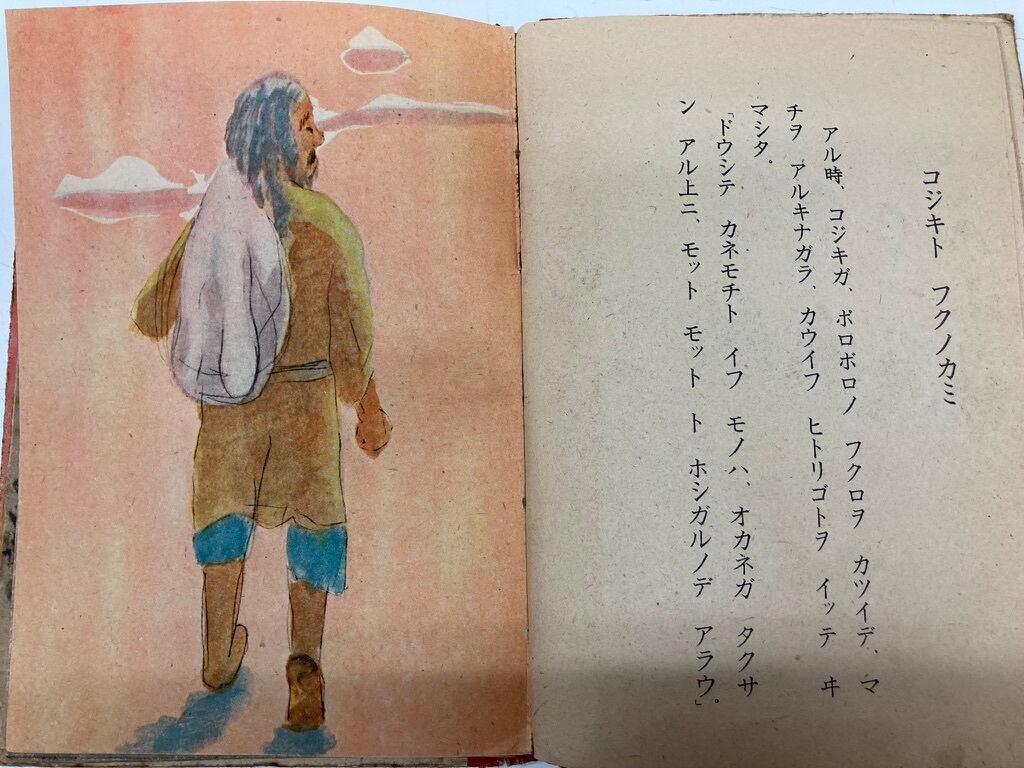 コジキト フクノカミ
アル時、コジキガ、ボロボロノ フクロヲ カツイデ、マ
チヲ アルキナガラ、カウイフ ヒトリゴトヲ イッテ ヰ
マシタ。
「ドウシテ カネモチト イフ モノハ、オカネガ タクサ
ン アル上ニ、モット モット ト ホシガルノデ アラウ」。